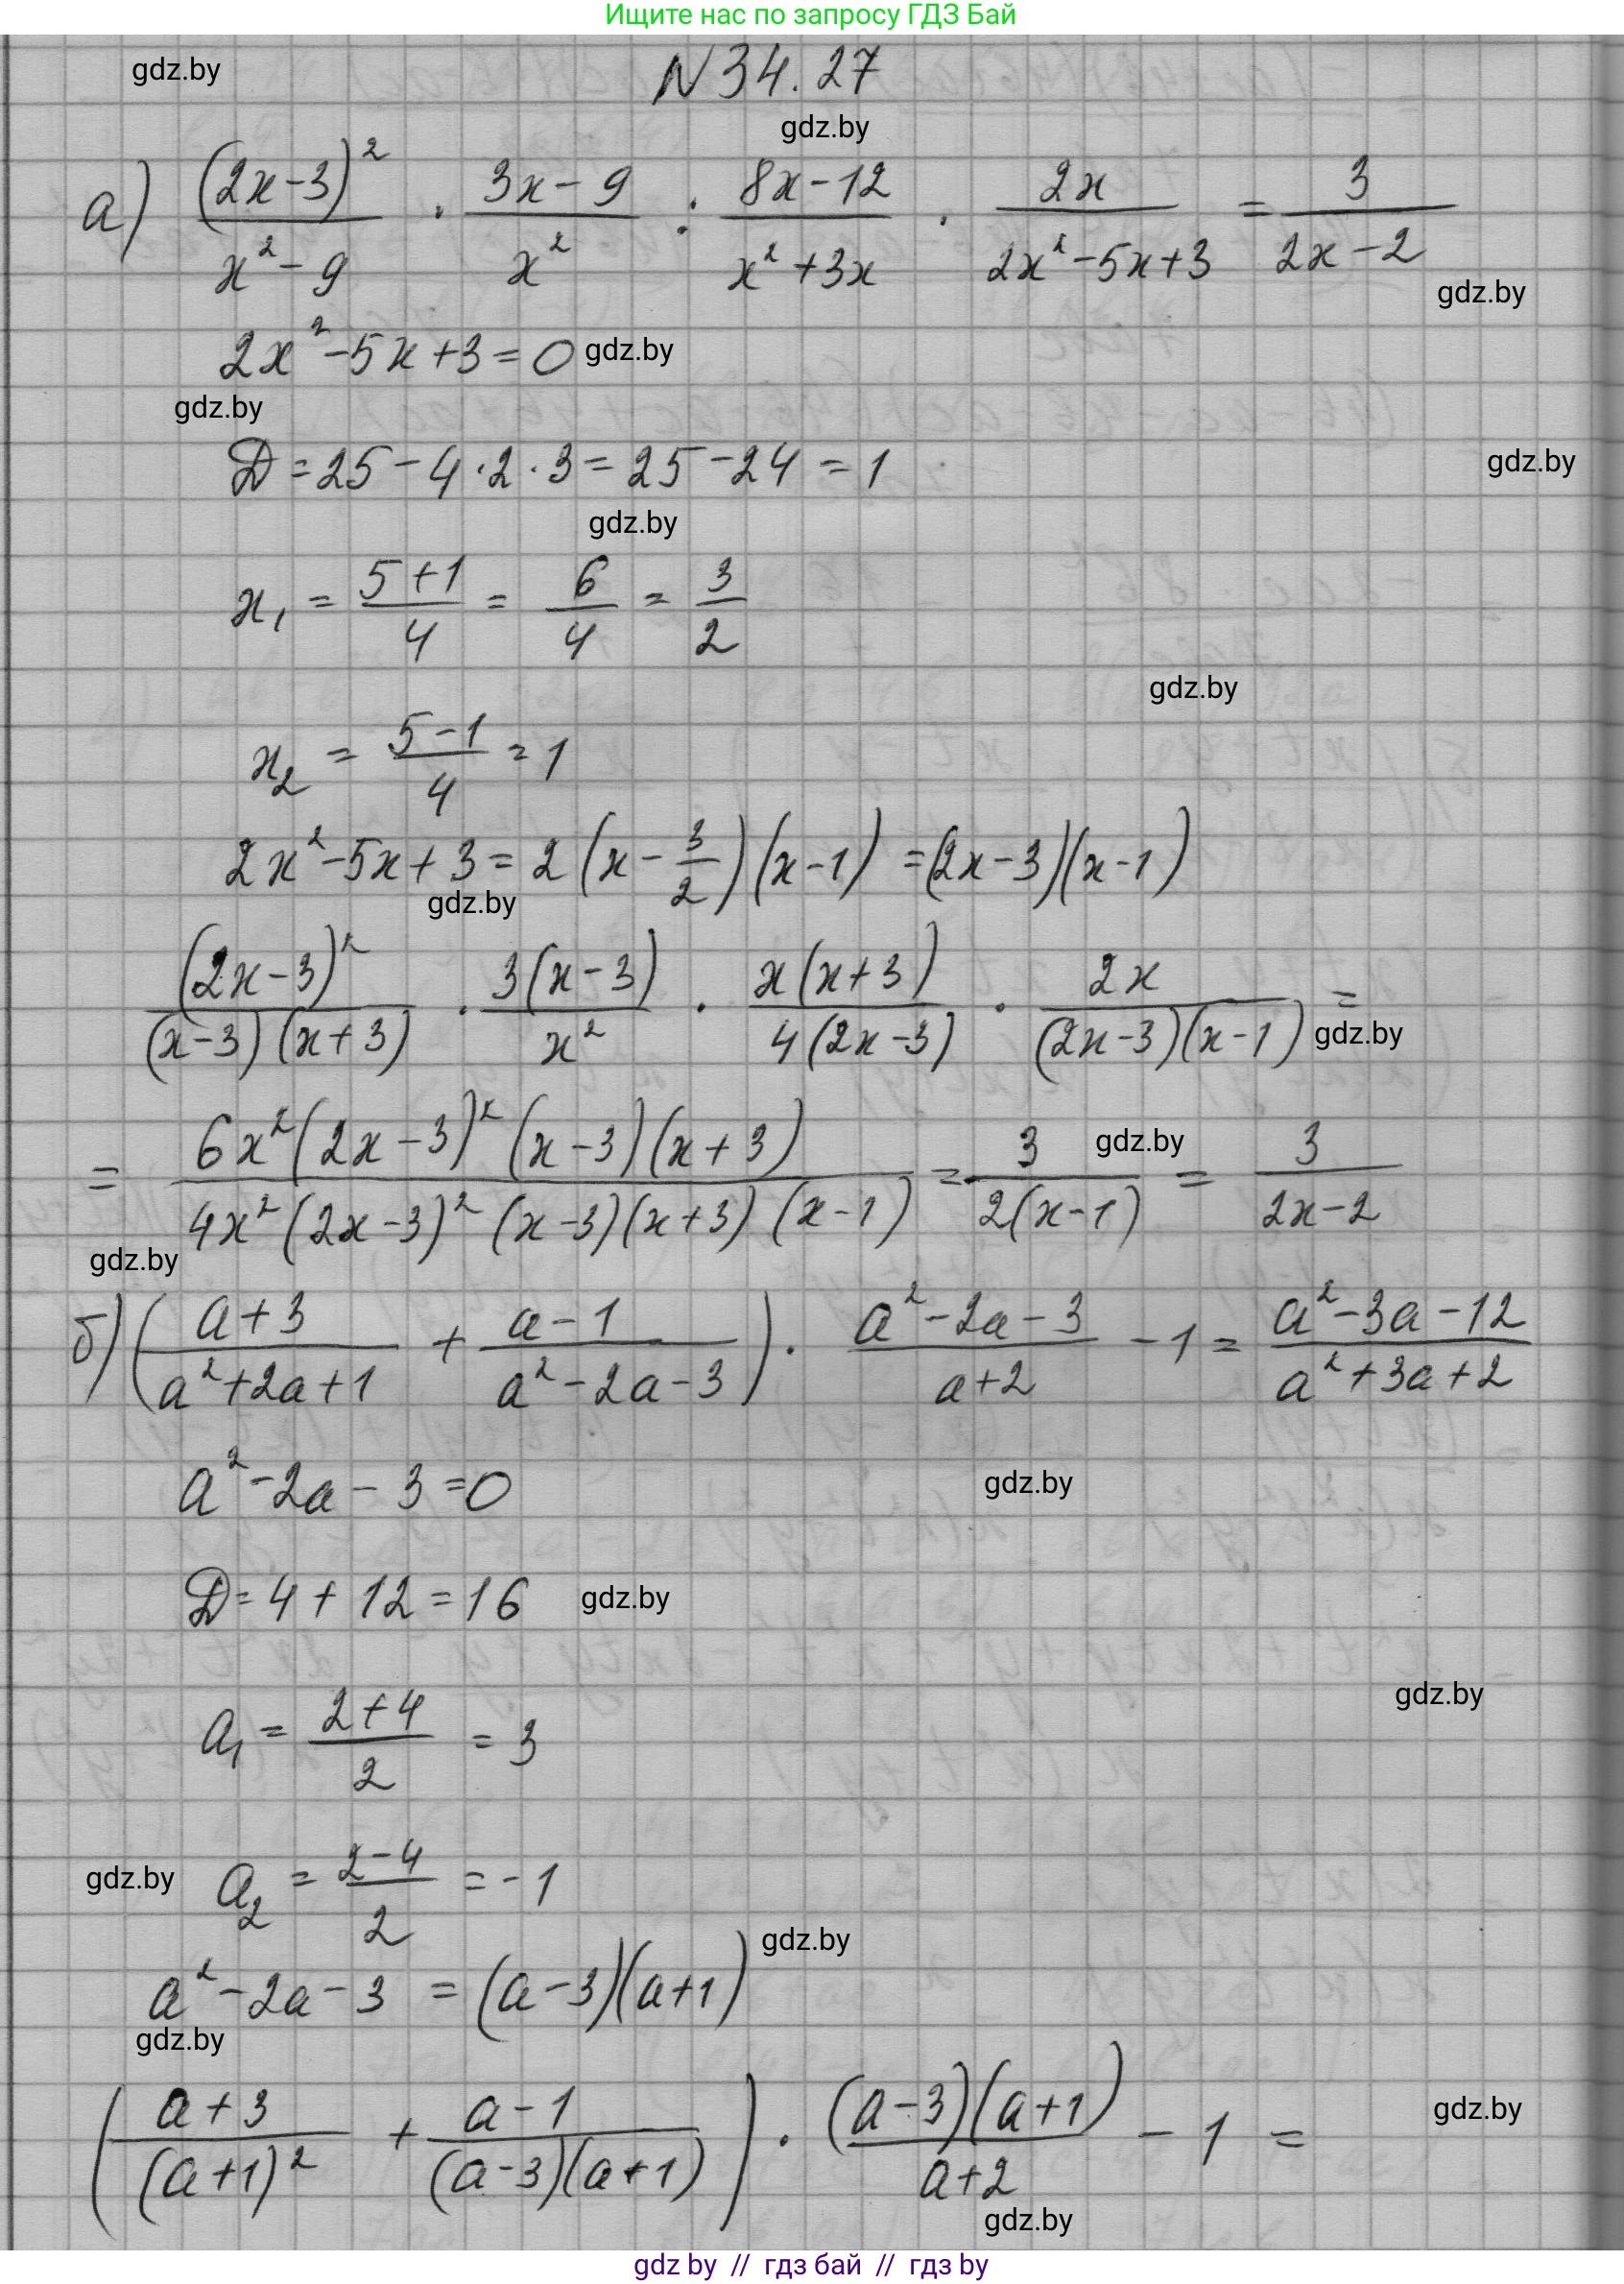 Ищите нас по запросу ГДЗ Бай
gdz.by
N 34.27
gdz.by
а) (2x-3)²/(x²-9) · (3x-9)/x² : (8x-12)/(x²+3x) · 2x/(2x²-5x+3) = 3/(2x-2)
gdz.by
2x²-5x+3=0 gdz.by
gdz.by
D=25-4·2·3=25-24=1
gdz.by
gdz.by
x₁ = (5+1)/4 = 6/4 = 3/2
gdz.by
x₂ = (5-1)/4 = 1
2x²-5x+3=2(x-3/2)(x-1)=(2x-3)(x-1)
gdz.by
(2x-3)²/((x-3)(x+3)) · 3(x-3)/x² · x(x+3)/(4(2x-3)) · 2x/((2x-3)(x-1)) =
gdz.by
= 6x²(2x-3)²(x-3)(x+3)/(4x²(2x-3)²(x-3)(x+3)(x-1)) = 3/(2(x-1)) = 3/(2x-2)
gdz.by
gdz.by
б) ((a+3)/(a²+2a+1) + (a-1)/(a²-2a-3)) · (a²-2a-3)/(a+2) - 1 = (a²-3a-12)/(a²+3a+2)
a²-2a-3=0
gdz.by
D=4+12=16 gdz.by
gdz.by
a₁ = (2+4)/2 = 3
gdz.by a₂ = (2-4)/2 = -1
gdz.by
a²-2a-3 = (a-3)(a+1)
gdz.by
((a+3)/(a+1)² + (a-1)/((a-3)(a+1))) · (a-3)(a+1)/(a+2) - 1 =
gdz.by
gdz.by
gdz by // гдз бай // гдз by